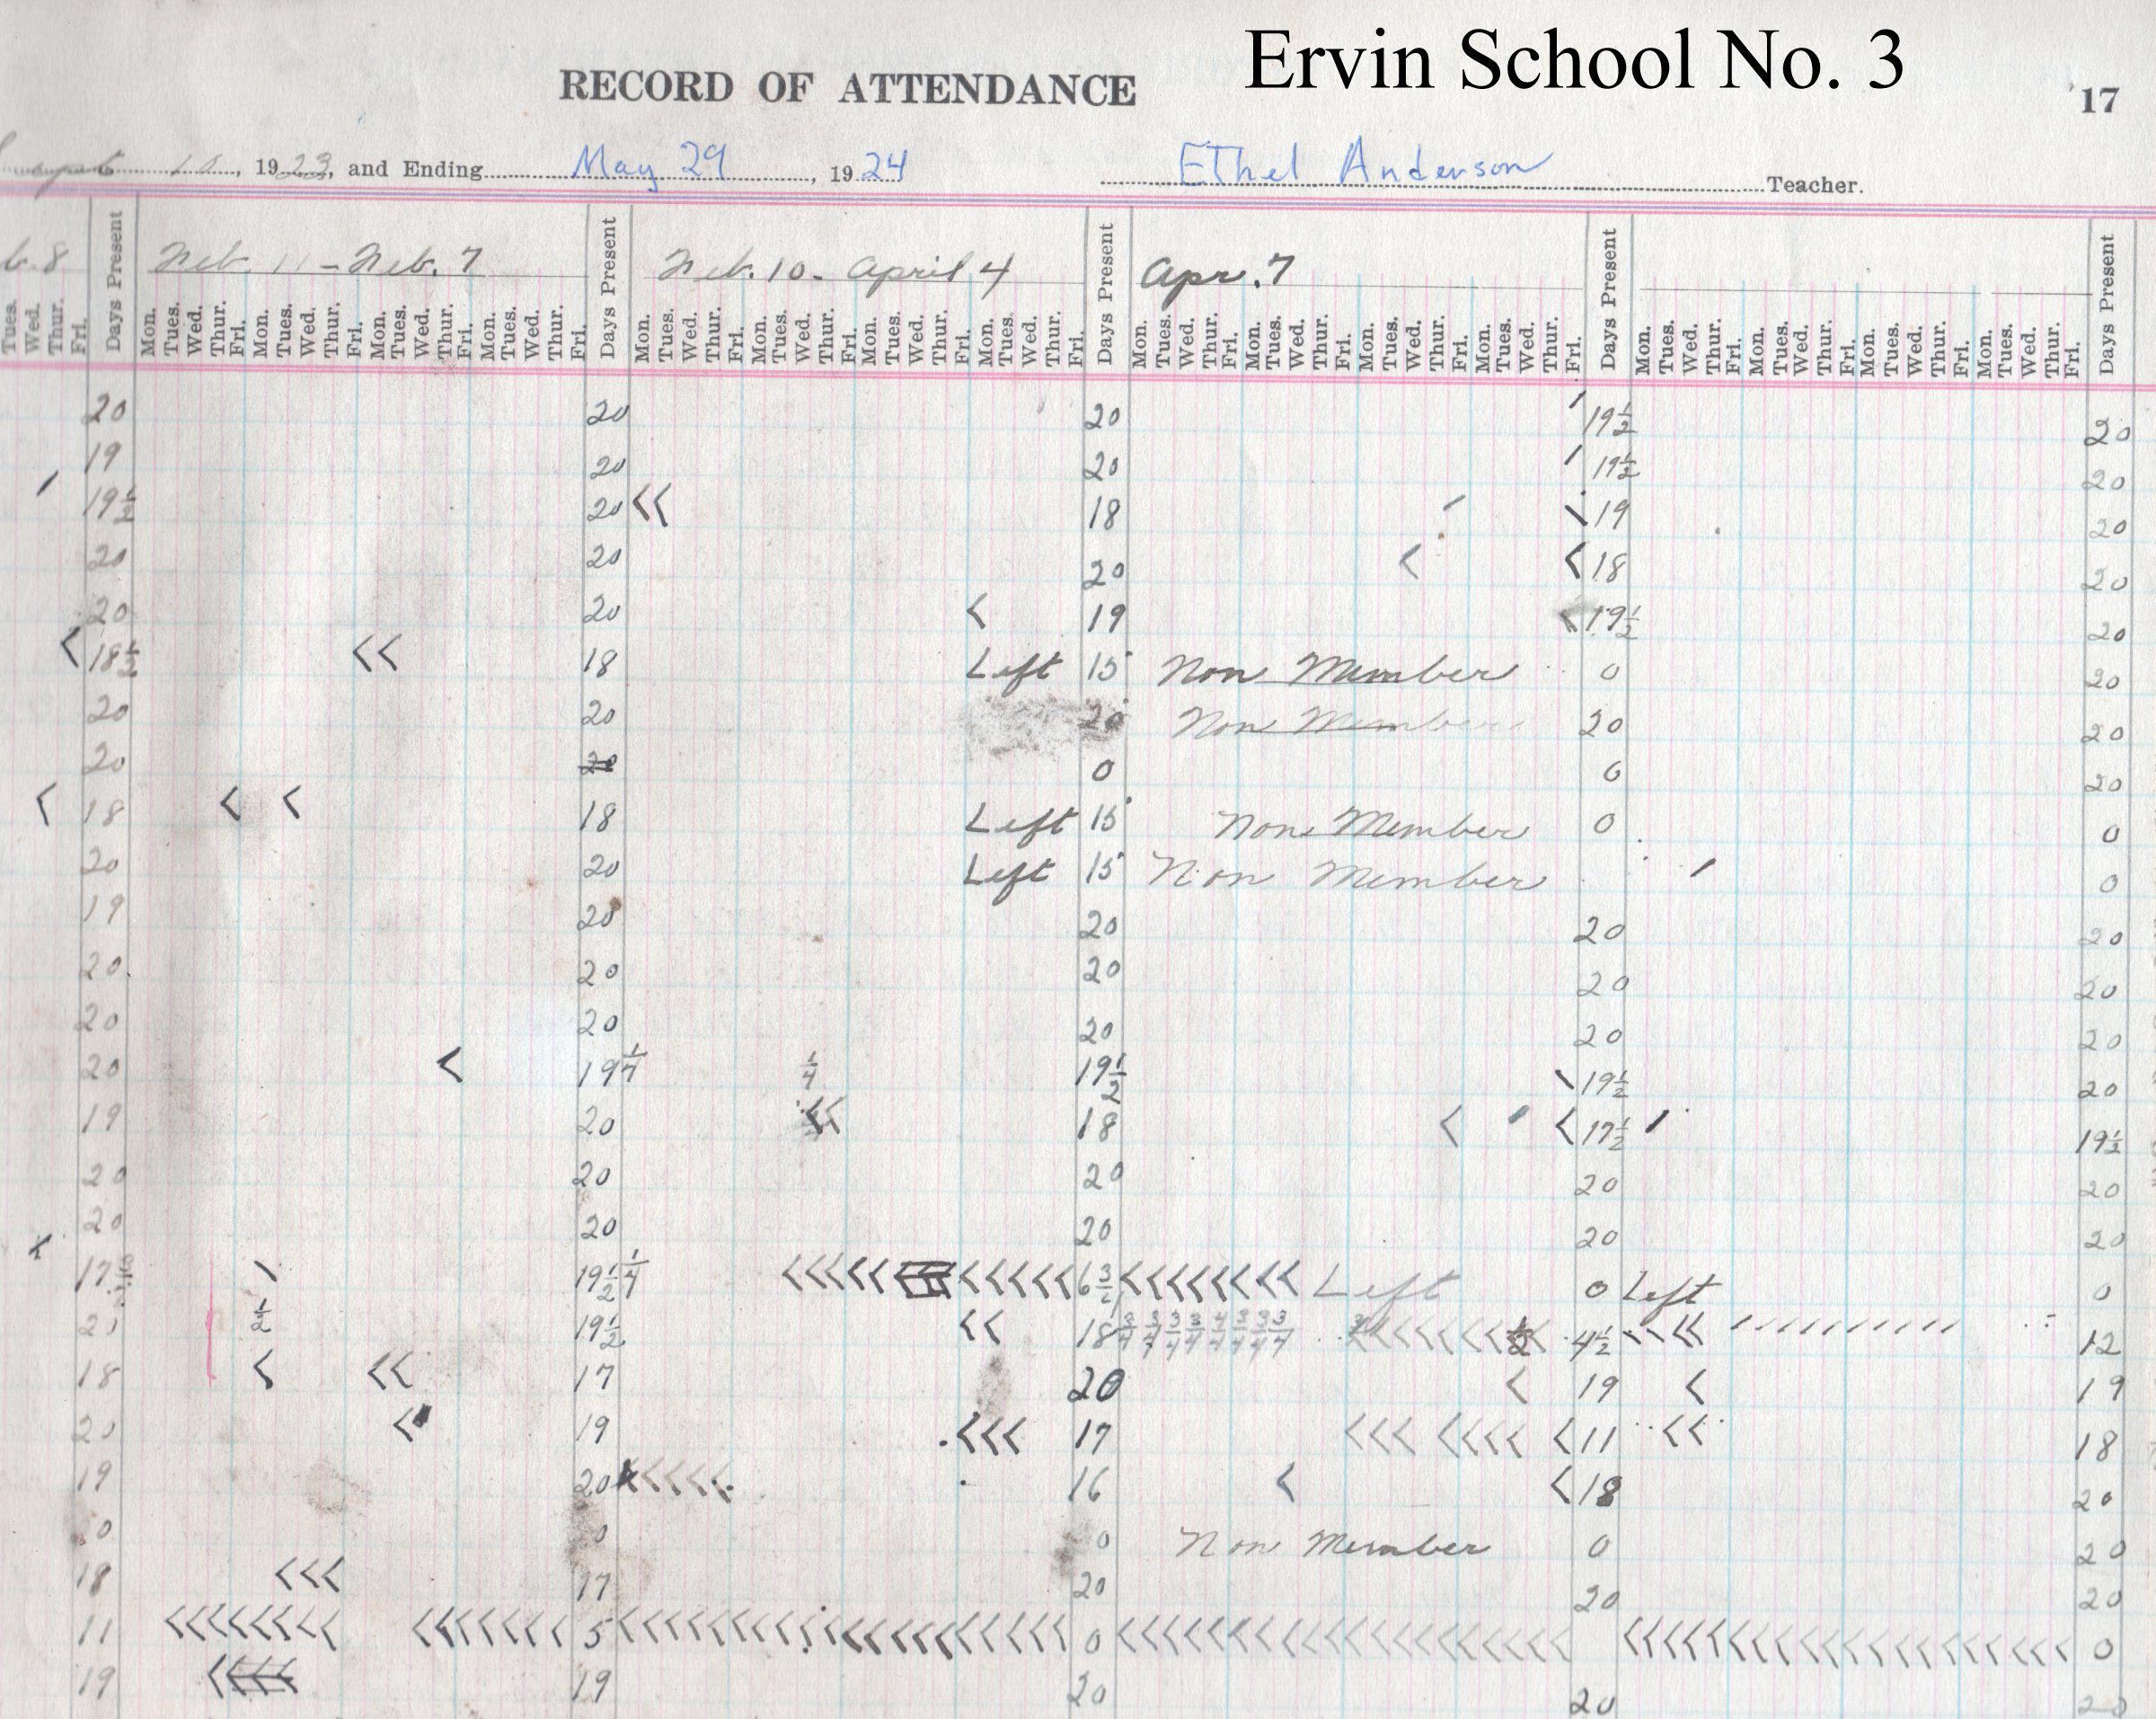 Ervin School No. 3
RECORD OF ATTENDANCE
17
10, 1923, and Ending May 29, 1924 Ethel Anderson Teacher.
b. 8 Days Present Feb. 11 - Feb. 7 Days Present Feb. 10 - April 4 Days Present Apr. 7 Days Present Days Present
Tues. Wed. Thur. Fri. Mon. Tues. Wed. Thur. Fri. Mon. Tues. Wed. Thur. Fri. Mon. Tues. Wed. Thur. Fri. Mon. Tues. Wed. Thur. Fri. Mon. Tues. Wed. Thur. Fri. Mon. Tues. Wed. Thur. Fri. Mon. Tues. Wed. Thur. Fri. Mon. Tues. Wed. Thur. Fri. Mon. Tues. Wed. Thur. Fri. Mon. Tues. Wed. Thur. Fri. Mon. Tues. Wed. Thur. Fri. Mon. Tues. Wed. Thur. Fri. Mon. Tues. Wed. Thur. Fri. Mon. Tues. Wed. Thur. Fri. Mon. Tues. Wed. Thur. Fri. Mon. Tues. Wed. Thur. Fri.
20 20 20 19½ 20
19 20 20 19½ 20
19½ 20 18 19 20
20 20 20 18 20
20 20 19 19½ 20
18½ 18 Left 15 Non Member 0 20
20 20 20 Non Member 20 20
20 20 0 0 20
18 18 Left 15 Non Member 0 0
20 20 Left 15 Non Member 0
19 20 20 20 20
20 20 20 20 20
20 20 20 20 20
20 19¼ ¼ 19½ 19½ 20
19 20 18 17½ 19½
20 20 20 20 20
20 20 20 20 20
17 19½ ¼ 6 Left 0 Left 0
½ 19½ 18 ¾ ¾ ¾ ¾ ¾ ¾ ¾ ½ 4½ 12
18 17 20 19 19
20 19 17 11 18
19 20 16 18 20
0 0 0 Non Member 0 20
18 17 20 20 20
11 5 0 0
19 19 20 20 20